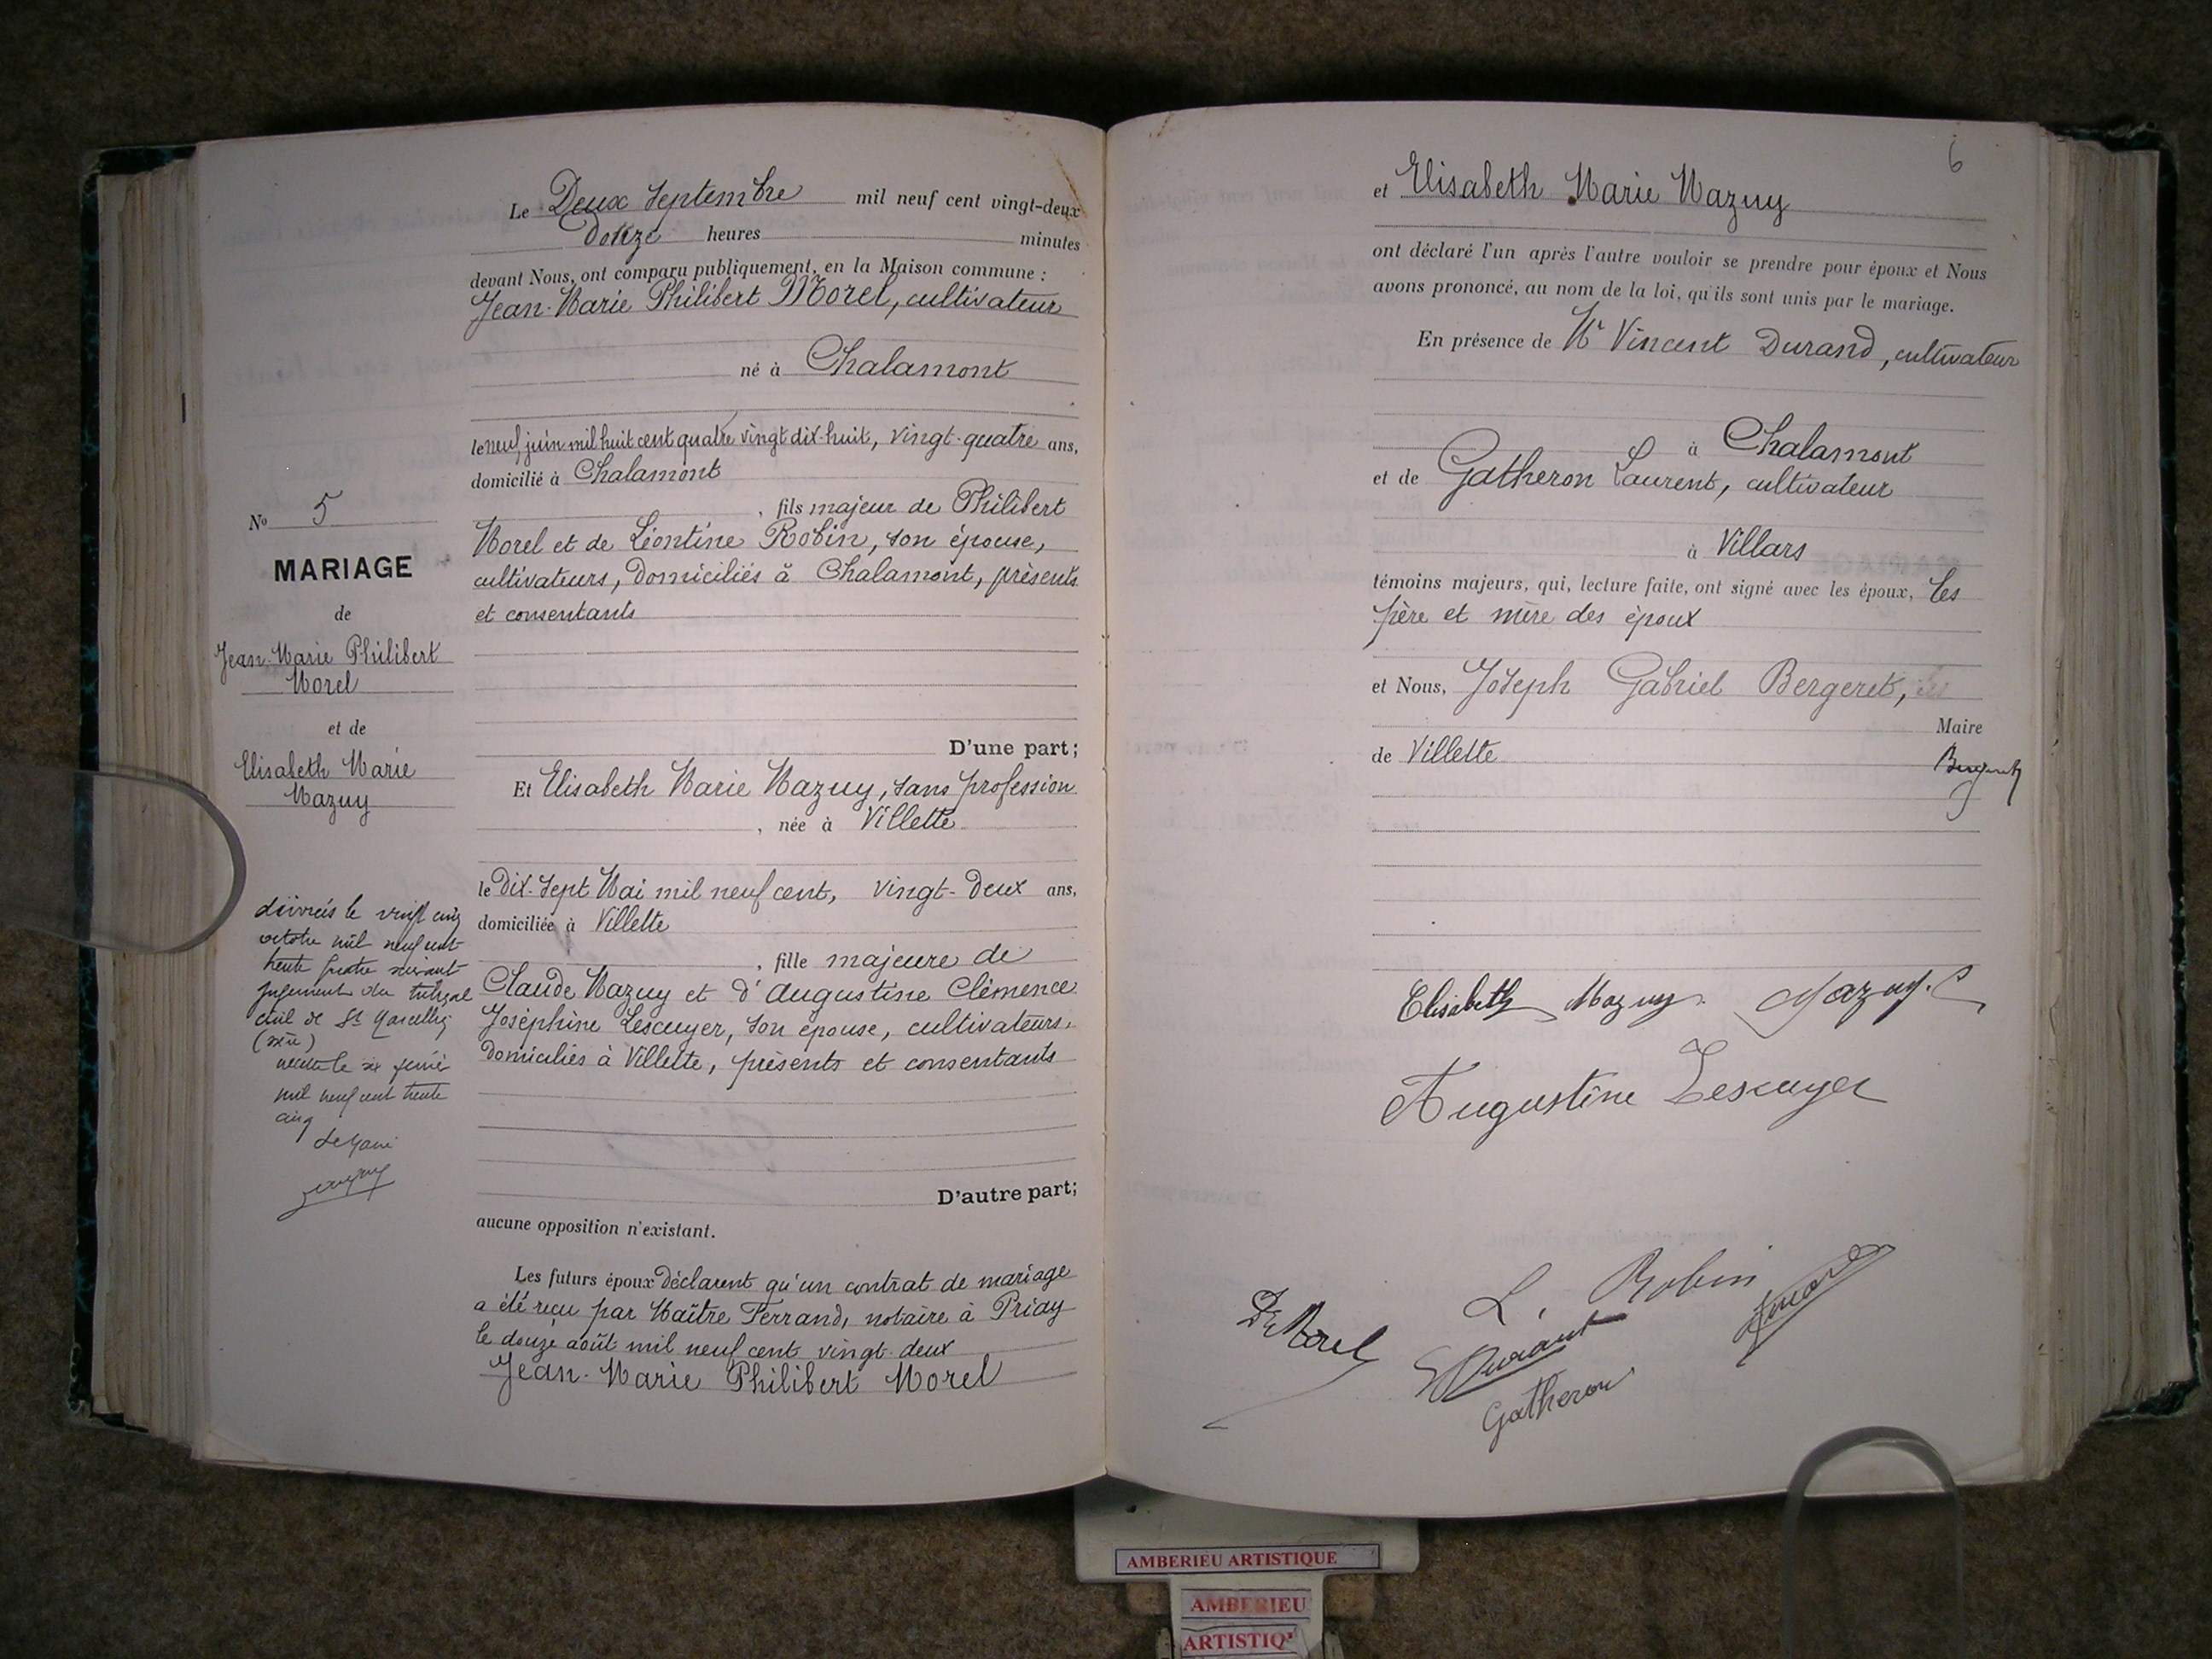 Le Deux Septembre mil neuf cent vingt-deux
Douze heures minutes
devant Nous, ont comparu publiquement, en la Maison commune :
Jean-Marie Philibert Morel, cultivateur
né à Chalamont
le neuf juin mil huit cent quatre vingt dix-huit, vingt-quatre ans,
domicilié à Chalamont
, fils majeur de Philibert
Morel et de Léontine Robin, son épouse,
cultivateurs, domiciliés à Chalamont, présents
et consentants
D'une part;
Et Elisabeth Marie Mazuy, sans profession
, née à Villette
le Dix-Sept Mai mil neuf cent, vingt-deux ans,
domiciliée à Villette
, fille majeure de
Claude Mazuy et d'Augustine Clémence
Joséphine Lescuyer, son épouse, cultivateurs,
domiciliés à Villette, présents et consentants
D'autre part;
aucune opposition n'existant.
Les futurs époux déclarent qu'un contrat de mariage
a été reçu par Maître Ferrand, notaire à Priay
le douze août mil neuf cent vingt-deux
Jean-Marie Philibert Morel
No 5
MARIAGE
de
Jean-Marie Philibert
Morel
et de
Elisabeth Marie
Mazuy
divorcés le vingt cinq
octobre mil neuf cent
trente quatre suivant
jugement du tribunal
civil de St Marcellin
mil neuf cent trente
cinq
Le Maire
6
et Elisabeth Marie Mazuy
ont déclaré l'un après l'autre vouloir se prendre pour époux et Nous
avons prononcé, au nom de la loi, qu'ils sont unis par le mariage.
En présence de Mr Vincent Durand, cultivateur
à Chalamont
et de Gatheron Laurent, cultivateur
à Villars
témoins majeurs, qui, lecture faite, ont signé avec les époux, les
père et mère des époux
et Nous, Joseph Gabriel Bergeret,
Maire
de Villette
Bergeret
Elisabeth Mazuy. Mazuy. C
Augustine Lescuyer
L. Robin
Morel
Durant
Gatheron
AMBERIEU ARTISTIQUE
AMBERIEU
ARTISTIQ